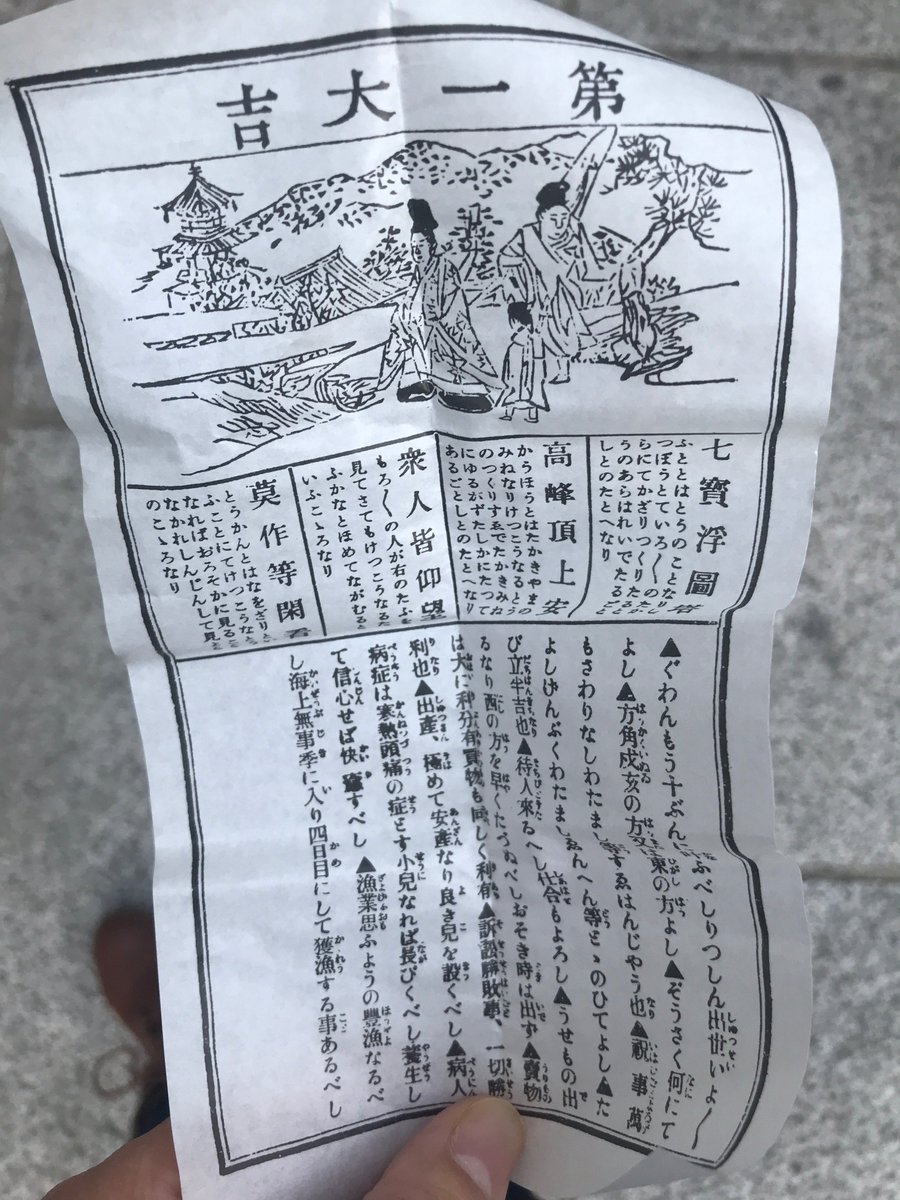 第一大吉
七寶浮圖
ふととはとうのことなり
つぽうとていろ〳〵の
らにてかざりつくりた
うのあらはれいでたる
しとのたとへなり
高峰頂上安
かうほうとはたかきやまの
みねなりけつこうなるとう
のつくりすゑでたかきみね
にゆるがずたしかにたつて
あるごとしとのたとへなり
衆人皆仰望
もろ〳〵の人が右のたふを
見てさてもけつこうなるた
ふかなとほめてながむると
いふこゝろなり
莫作等閑看
とうかんとはなをざりと
ふことにてけつこうなら
なればおろそかに見ること
なかれしんじんして見よ
のこゝろなり
▲ぐわんもう十ぶんに ふべしりつしん出世いよ〳〵
よし▲方角戍亥の方又は東の方よし▲ぞうさく何にて
もさわりなしわたまし等すゑはんじやう也▲祝事萬
よしげんぶくわたましゑんへん等とゝのひてよし▲た
び立半吉也▲待人來るへし仕合もよろし▲うせもの出
るなり酉の方を早くたづぬべしおそき時は出ず▲賣物
は大に利分有買物も同しく利有▲訴訟勝敗事、一切勝
利也▲出產、極めて安產なり良き兒を設くべし▲病人
病症は寒熱頭痛の症とす小兒なれば長びくべし養生し
て信心せば快癒すべし▲漁業思ふようの豐漁なるべ
し海上無事季に入り四日目にして獲漁する事あるべし